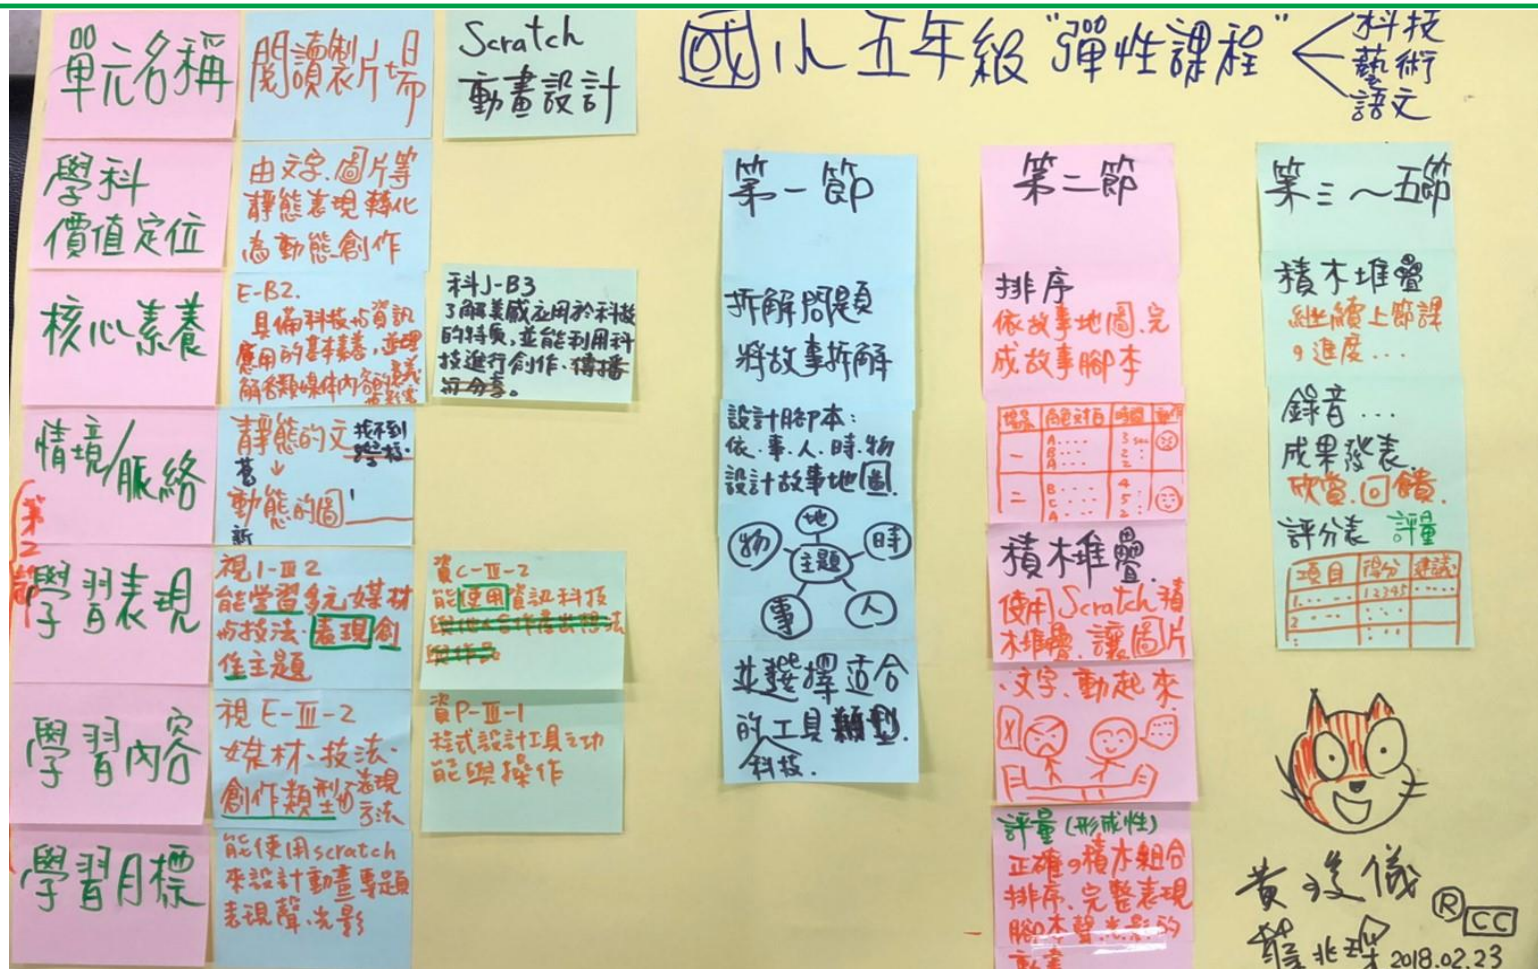 單元名稱
閱讀製片場
Scratch
動畫設計
國小五年級"彈性課程"
科技
藝術
語文
學科
價值定位
由文字、圖片等
靜態表現轉化
為動態創作
核心素養
E-B2.
具備科技與資訊
應用的基本素養,並理
解各類媒體內容的意義
與影響
科J-B3
了解美感應用於科技
的特質,並能利用科
技進行創作、傳播
與分享。
情境/脈絡
靜態的文
找不到
舊
動態的圖
新
第2節
學習表現
視1-Ⅲ2
能學習多元媒材
與技法、表現創
作主題
資C-Ⅲ-2
能使用資訊科技
與他人合作產出想法
與作品
學習內容
視E-Ⅲ-2
媒材、技法、
創作類型的表現
方法
資P-Ⅲ-1
程式設計工具之功
能與操作
學習目標
能使用scratch
來設計動畫專題
表現聲、光影
第一節
拆解問題
將故事拆解
設計腳本:
依.事.人.時.物
設計故事地圖.
地
物
時
主題
事
人
並選擇適合
的工具類型.
科技.
第二節
排序
依故事地圖.完
成故事腳本
場景 角色對白 時間 動作
一 A.... 3 sec
B.... 2
A... 2
二 B... 4
C... 5
A 2
積木堆疊.
使用Scratch積
木堆疊.讓圖片
.文字.動起來
評量(形成性)
正確的積木組合
排序.完整表現
腳本聲.光影的
動畫
第三～五節
積木堆疊
繼續上節課
的進度...
錄音...
成果發表.
欣賞.回饋.
評分表 評量
項目 得分 建議
1..... 12345 .....
2
黃琇儀
R CC
2018.02.23